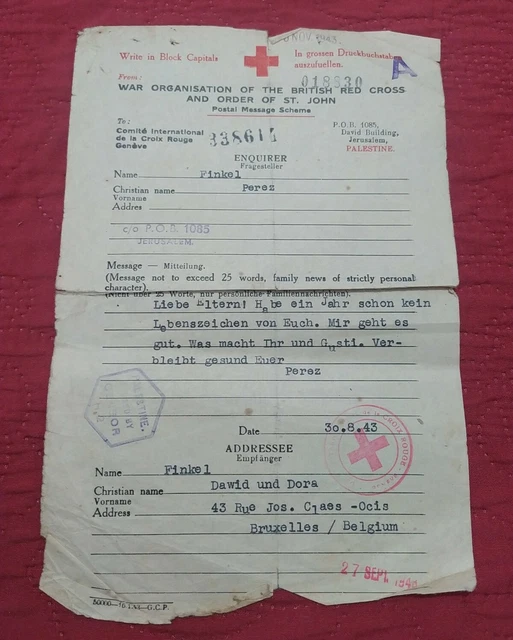 NOV 1943
Write in Block Capitals
In grossen Druckbuchstaben
auszufuellen.
A
From:
018630
WAR ORGANISATION OF THE BRITISH RED CROSS
AND ORDER OF ST. JOHN
Postal Message Scheme
To:
Comité International
de la Croix Rouge
Genève
338617
P.O.B. 1085,
David Building,
Jerusalem,
PALESTINE.
ENQUIRER
Fragesteller
Name Finkel
Christian name Perez
Vorname
Addres
c/o P.O.B. 1085
JERUSALEM.
Message — Mitteilung.
(Message not to exceed 25 words, family news of strictly personal
character).
(Nicht über 25 Worte, nur persönliche Familiennachrichten).
Liebe Eltern! Habe ein Jahr schon kein
Lebenszeichen von Euch. Mir geht es
gut. Was macht Ihr und Gusti. Ver-
bleibt gesund Euer
Perez
Date 30.8.43
ADDRESSEE
Empfänger
Name Finkel
Christian name Dawid und Dora
Vorname
Address 43 Rue Jos. Claes -Ocis
Bruxelles / Belgium
27 SEPT. 1943